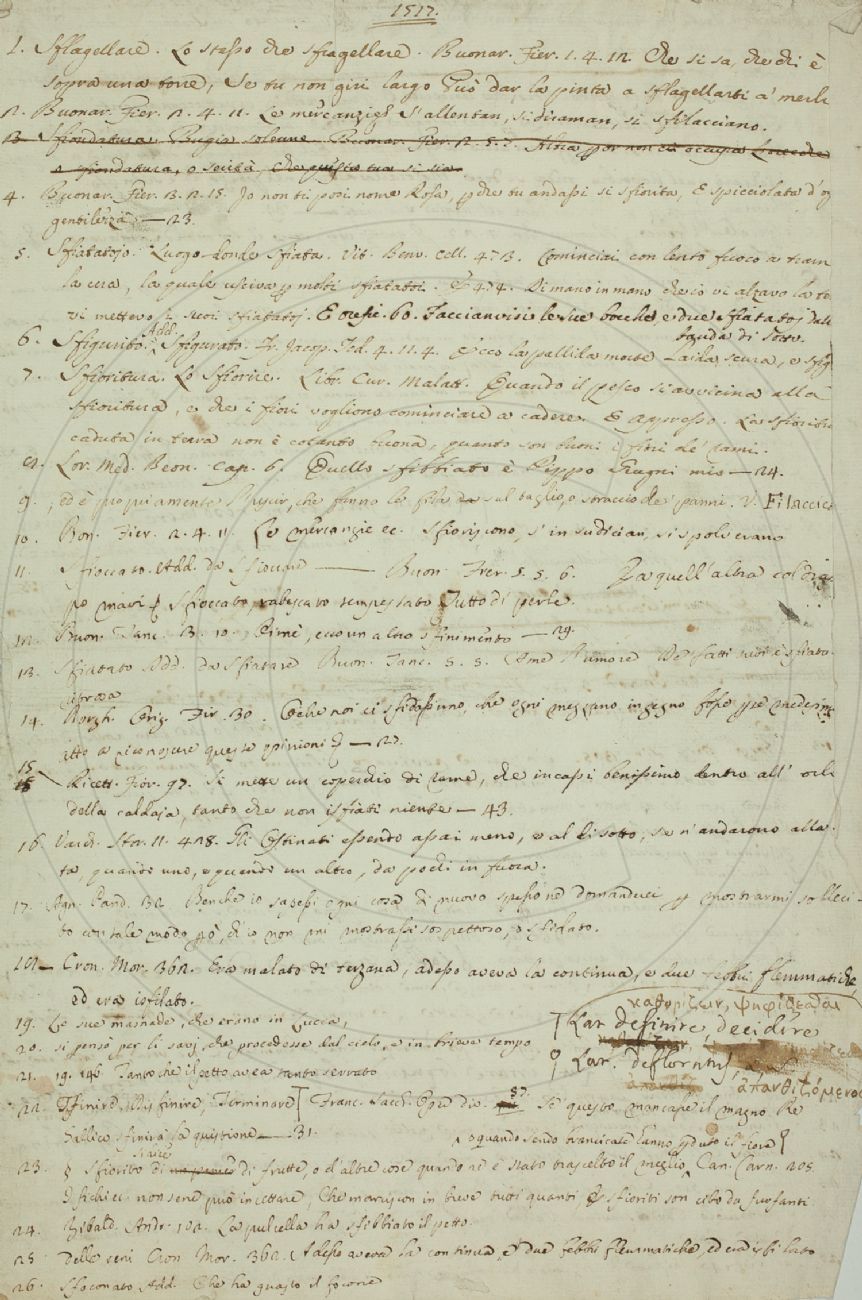 1517.
1. Sflagellare. Lo stesso che sfragellare. Buonar. Fier. 1. 4. 12. Che si sa, che chi è
sopra una torre, Se tu non giri largo Può dar la pinta a sflagellarti a' merli
2. Buonar. Fier. 2. 4. 11. Le mercanzie s'allentan, si diraman, si sfilacciano.
3. Sfiondatura. Bugia solenne. Buonar. Fier. 2. 5.
o sfiondatura, o scilta, che questa tua si sia.
4. Buonar. Fier. 3. 2. 15. Io non ti posi nome Rosa, perche tu andassi si sfiorita, E spicciolata d'og
gentilezza — 23.
5. Sfiatatojo. Luogo donde sfiata. Vit. Benv. Cell. 473. Cominciai con lento fuoco a trarn
la cera, la quale usciva p molti sfiatatoi. E 474. Di mano in mano che io vi alzavo la te
vi mettevo i suoi sfiatatoj. E Orefic. 60. Faccianvisi le sue bocche, e due sfiatatoj dall
banda di sotto.
6. Sfigurito. Add. Sfigurato. Fr. Jacop. Tod. 4. 11. 4. Ecco la pallida morte Laida, scura, e sfig
7. Sfioritura. Lo sfiorire. Libr. Cur. Malatt. Quando il pesco si avvicina alla
sfioritura, e che i fiori vogliono cominciare a cadere. E appresso. La sfioritu
caduta in terra non è cotanto buona, quanto son buoni i fiori de' rami.
8. Lor. Med. Beon. cap. 6. Quello sfibbiato è Pippo Giugni mio — 24.
9. , ed è propriamente Uscir, che fanno le fila da sul taglio, o straccio de' panni. V. Filaccic
10. Bon. Fier. 2. 4. 11. Le mercanzie ec. sfioriscono, s'insudician, si spolverano
11. Sfioccato. Add. da Sfioccare — Buon. Fier. 5. 5. 6. Da quell'altra col drap
po mavì sfioccato, rabescato tempestato Tutto di perle.
12. Buon. Tanc. 3. 10. Oimè, ecco un altro sfinimento — 29.
13. Sfiatato Add. da Sfiatare Buon. Tanc. 5. 5.
14. Borgh. Orig. Fir. 30. Oche noi ci sfidassimo, che ogni mezzano ingegno fosse per medesim
atto a riconoscere queste opinioni — 27.
15 Ricett. Fior. 97. Si mette un coperchio di rame, che incassi benissimo dentro all' orli
della caldaja, tanto che non isfiati niente — 43.
16. Varch. Stor. 11. 428. Gli Ostinati essendo assai meno, e al disotto, se n'andarono alla
ta, quando uno, e quando un altro, da pochi in fuora.
17. Agn. Pand. 32. Benche io sapessi ogni cosa di nuovo spesso ne domandaci p mostrarmi solleci-
to con tale modo pò, ch'io non mi mostrassi sospettoso, o sfidato.
18 — Cron. Mor. 362. Era malato di terzana, adesso aveva la continua, e due febbri flemmatiche,
ed era isfilato.
19. Le sue masnade, che erano in Lucca,
20. si pensò per li savj, che procedesse dal cielo, e in brieve tempo
21. 19. 146 Tanto che il petto avea tanto serrato
καθορίζειν, ψηφίζεσθαι
Lat. definire, decidere
Lat. deflorntus,
ἀπανθιζόμενος
22. Diffinire, Terminare Franc. Sacch. Op. div. 57. Se questo mancasse il magno Re
Gallico sfinirà la quistione — 31.
o quando sendo brancicate hanno perduto il fiore
23. sfiorito di frutte, o d'altre cose quando ne è stato trascelto il meglio, Can. Carn. 205.
I fichi ec. non se ne può incettare, Che marciscon in breve tutti quanti, E sfioriti son cibo da furfanti
24. Zibald. Andr. 102. La pulcella ha sfibbiato il petto.
25 delle reni Cron Mor. 362. Adesso aveva la continua, e due febbri flemmatiche, ed era isfilato
26. Sfoconato Add. Che ha guasto il focone